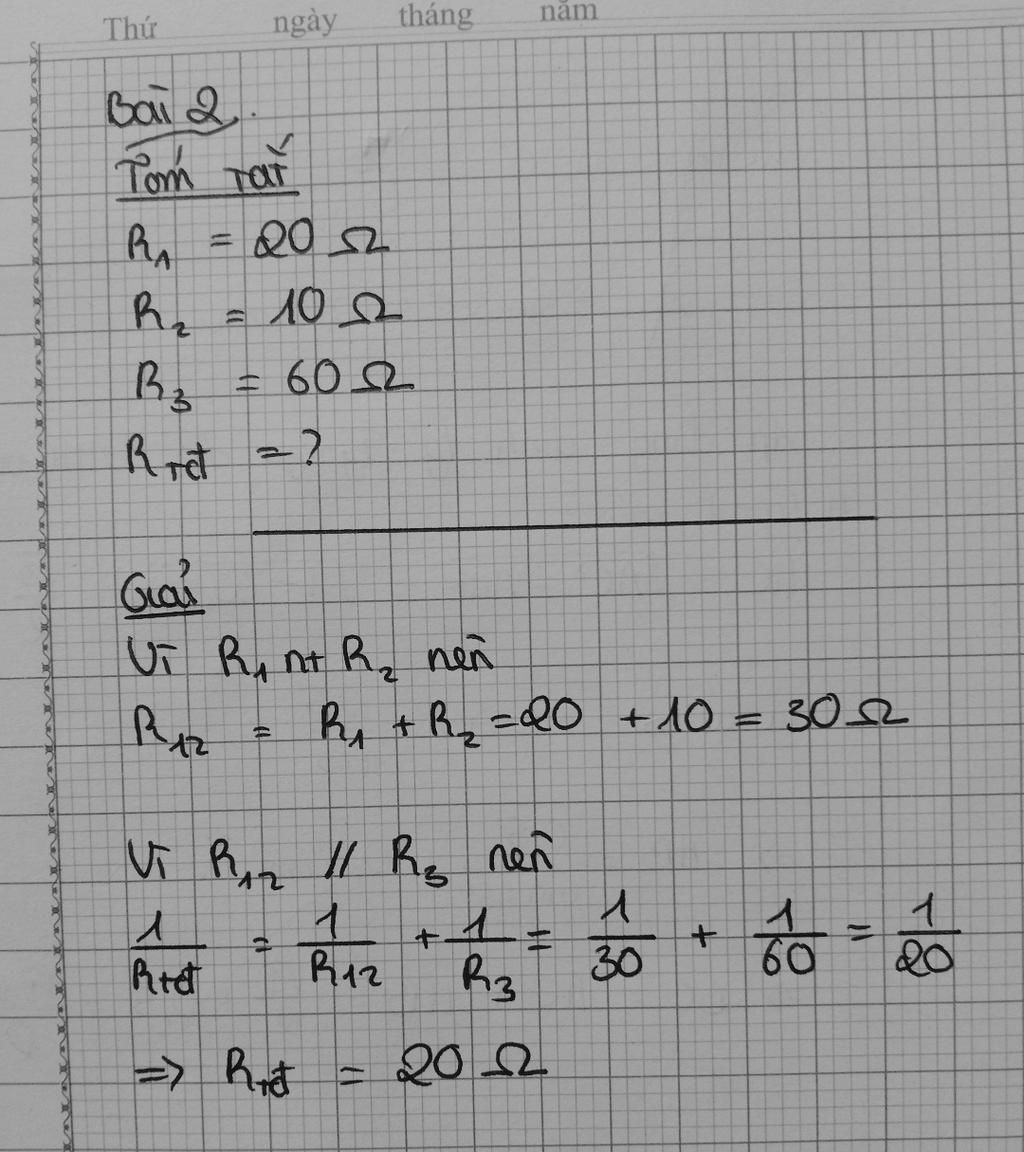 Thứ ngày tháng năm
Bài 2.
Tóm tắt
R₁ = 20 Ω
R₂ = 10 Ω
R₃ = 60 Ω
Rtđ = ?
Giải
Vì R₁ nt R₂ nên
R₁₂ = R₁ + R₂ = 20 + 10 = 30 Ω
Vì R₁₂ // R₃ nên
1/Rtđ = 1/R₁₂ + 1/R₃ = 1/30 + 1/60 = 1/20
=> Rtđ = 20 Ω